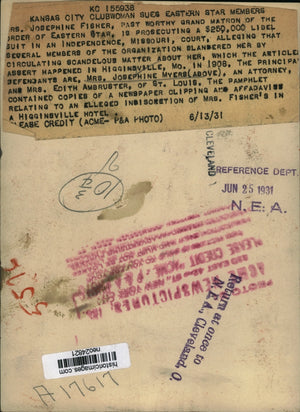 KC 155938
KANSAS CITY CLUBWOMAN SUES EASTERN STAR MEMBERS
RS. JOSEPHINE FISHER, PAST WORTHY GRAND MATRON OF THE
RDER OF EASTERN STAR, IS PROSECUTING A $250,000 LIBEL
SUIT IN AN INDEPENDENCE, MISSOURI, COURT, ALLEGING THAT
SEVERAL MEMBERS OF THE ORGANIZATION SLANDERED HER BY
CIRCULATING SCANDELOUS MATTER ABOUT HER, WHICH THE ARTICLE
ASSERT HAPPENED IN HIGGINSVILLE, MO. IN 1906. THE PRINCIPA
DEFENDANTS ARE, MRS. JOSEPHINE MYERS(ABOVE), AN ATTORNEY,
AND MRS. EDITH AMBRUSTER, OF ST. LOUIS. THE PAMPHLET
CONTAINED COPIES OF A NEWSPAPER CLIPPING AND AFFADAVISS
RELATING TO AN ALLEGED INDISCRETION OF MRS. FISHER'S IN
A HIGGINSVILLE HOTEL
EASE CREDIT (ACME- P&A PHOTO) 6/13/31
CLEVELAND
REFERENCE DEPT.
JUN 25 1931
N. E. A.
PLEASE CREDIT
ACME NEWSPICTURES
Return at once to
N. E. A., Cleveland, O.
historicimages.com
neo24821
A17617